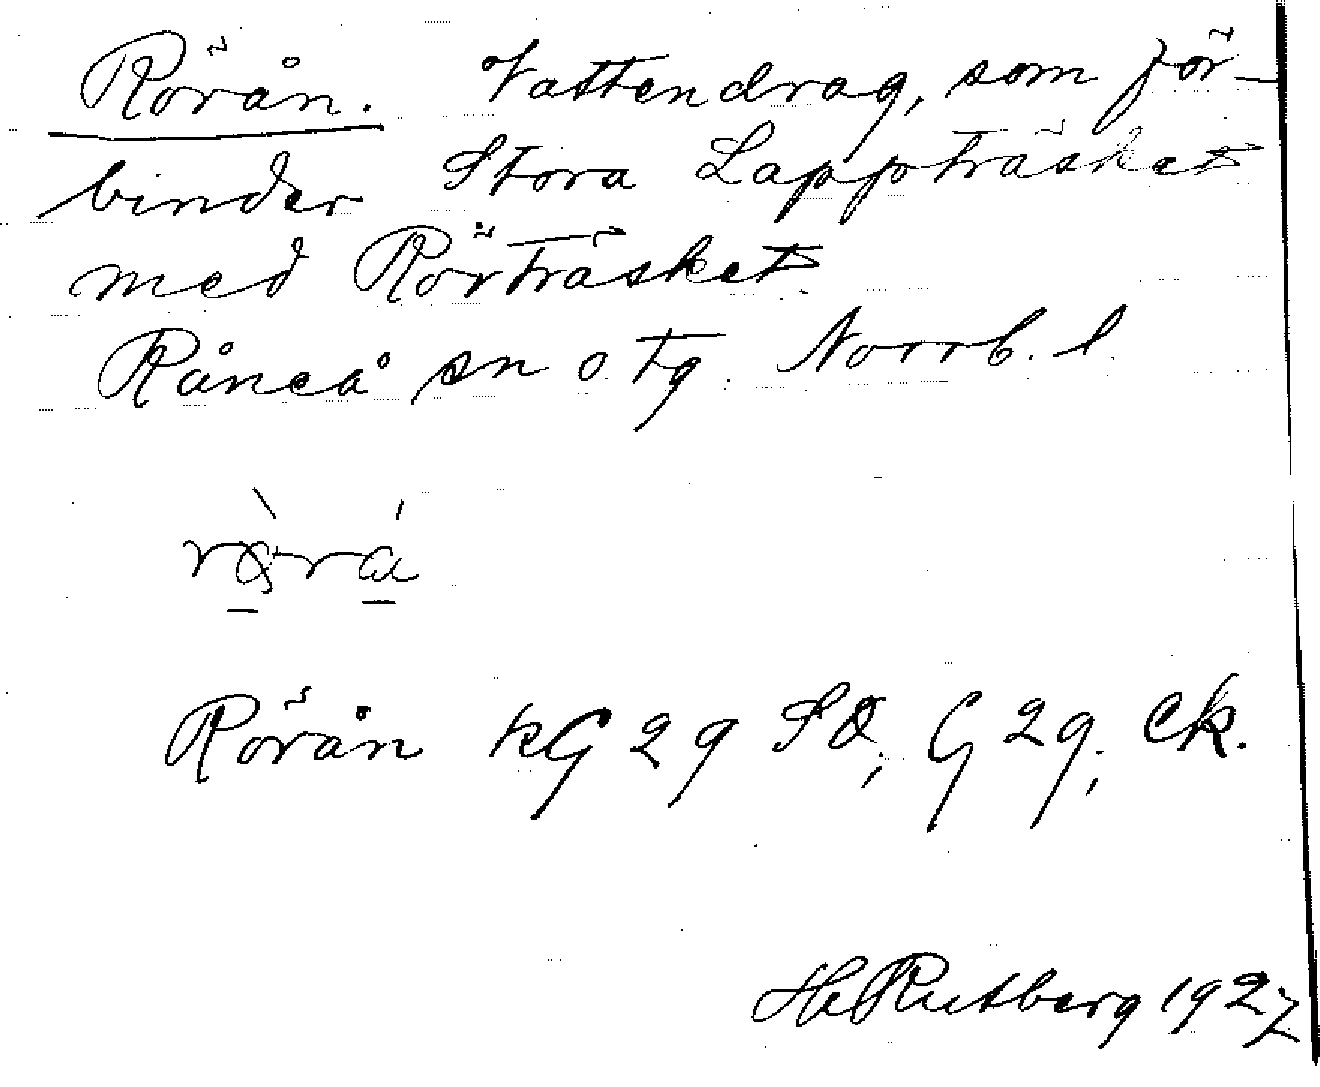 Rörån. Vattendrag, som för-
binder Stora Lappträsket
med Rörträsket.
Råneå sn o tg Norrb. l.
Rörån kG 29 SO; G 29; Ek.
H Rutberg 1927